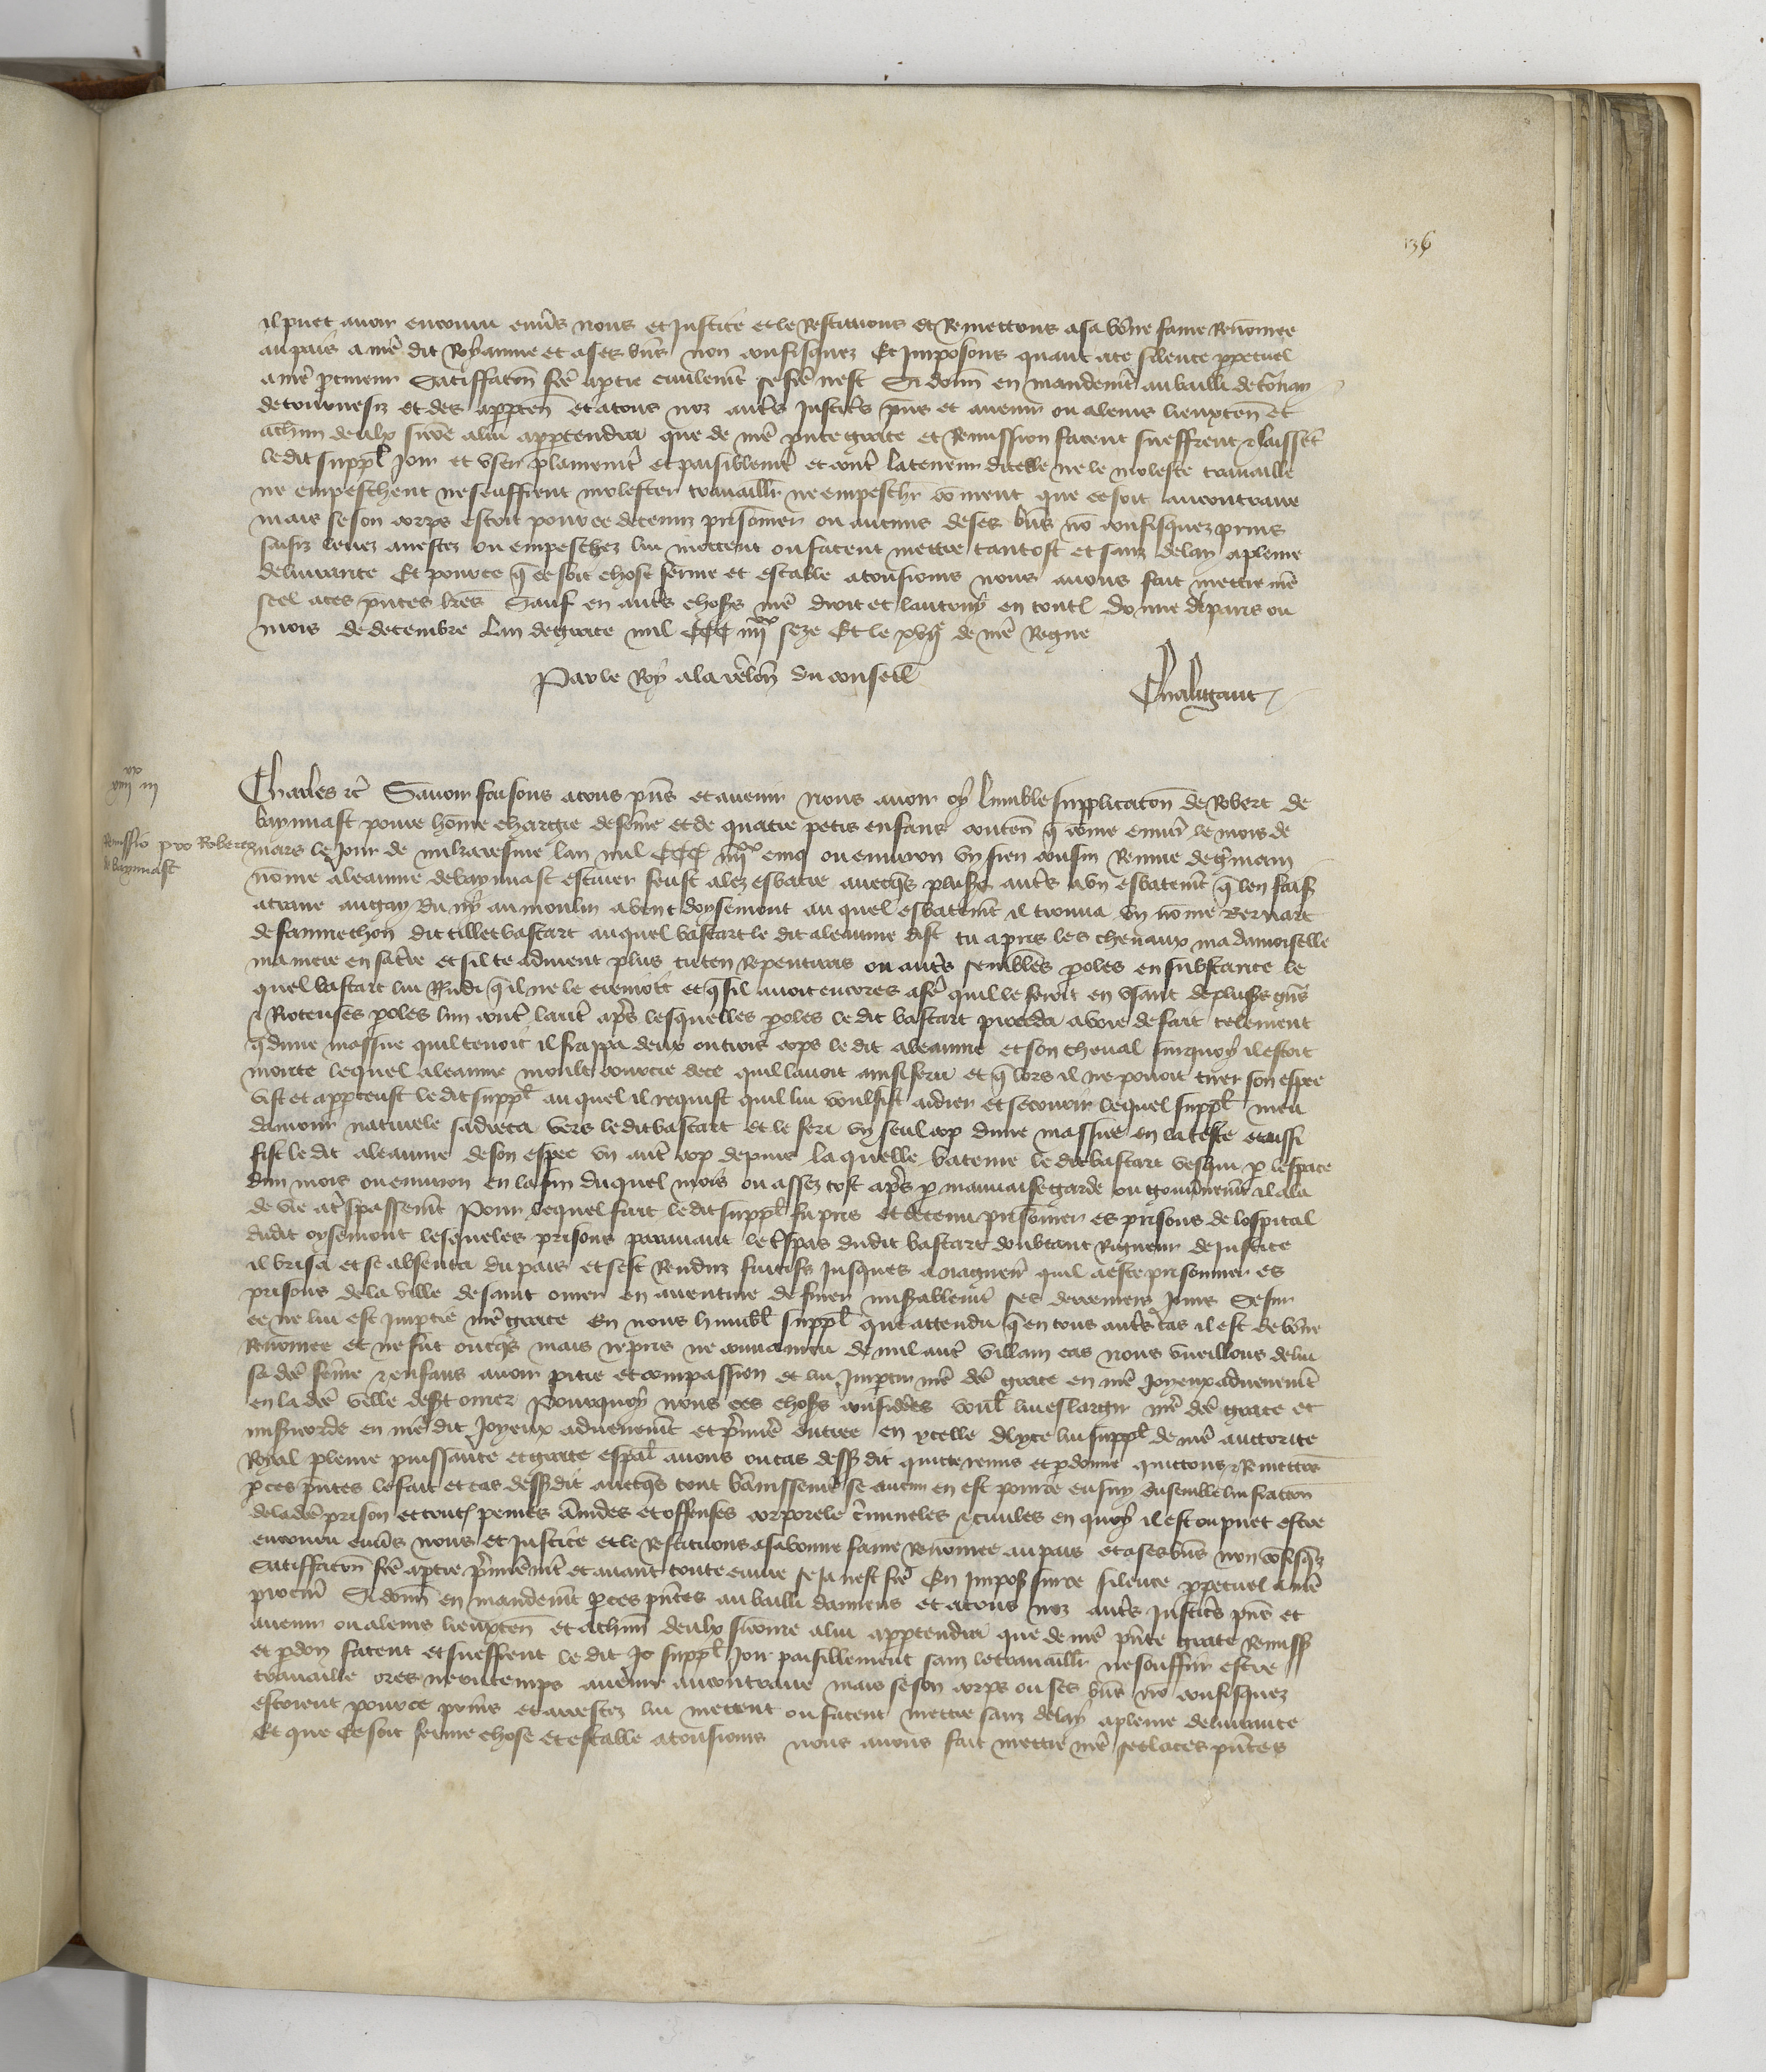 136
il puet avoir encouru envers nous et Justice et le Restituons et Remettons a sa bonne fame Renommee
au pais a nre dit Royaume et a ses biens non confisquez Et Imposons quant a ce silence perpetuel
a nre procureur Satisfaction fce a partie civilement se fce nest Si donn en mandement au bailli de tournay
de tournesiz et des apparten et a tous noz autres Justiciers pns et avenir ou a leurs lieuxten et
a chun deulx si comme a lui appartendra que de nre pnte grace et Remission facent sueffrent & laissent
ledit suppl Joir et user plainement et paisiblement et contre la teneur dicelle ne le moleste travaille
ne empeschent ne seuffrent molester travaillr ne empeschr comment que ce soit au contraire
mais se son corps estoit pour ce detenuz prisonnier ou aucuns de ses biens no confisquez prins
saisiz levez arrestez ou empeschez lui mettent ou facent mettre tantost et sanz delay a pleine
delivrance Et pour ce q ce soit chose ferme et estable a tousjours nous avons fait mettre nre
seel a ces pntes lres Sauf en autres choses nre droit et lautruy en toutes Donne a paris ou
mois de decembre Lan de grace mil CCC iiijxx seze Et le xvije de nre Regne
Par le Roy a la relon du conseil
Chaligaut
xx
viij iij
Charles &c Savoir faisons a tous pns et avenir nous avoir oy lumble supplicaton de Robert de
baynnast povre homme chargie de femme et de quatre petis enfans conten q comme environ le mois de
Remissio pro Roberto
de baynnast
mars le Jour de mikaresme lan mil CCC iiijxx cinq ou environ un sien cousin Remue de germain
nomme aleaume de baynnast escuier feust alez esbatre avecqs plusrs autres a un esbatement q len faisoit
a traire au gay du ny au moulin a vent doysemont au quel esbatement il trouva un nomme Bernart
de fannechon dit tillet bastart auquel bastart le dit aleaume dist tu a pris les chevaux ma damoiselle
ma mere en satre et sil te advient plus tu ten repentiras ou autres semblles poles en substance le
quel bastart lui Rendi q il ne le cremoit et q sil avoit encores a fe quil le feroit en usant de plusrs grns
& Rioteuses poles lun contre lautre apres lesquelles poles le dit bastart proceda a voie de fait telement
q dune massue quil tenoit il frappa deux ou trois cops le dit aleaume et son cheval sur quoy il estoit
monte lequel aleaume moult couroucie de ce quil lavoit ainsi feru et q lors il ne povoit tirer son espee
vist et apperceust le dit suppl au quel il requist quil lui voulsist aidier et secourir lequel suppl meu
damour naturele sadreca vers le dit bastart et le feri un seul cop dune massue en la teste et aussi
fist le dit aleaume de son espee un autre cop depuis laquelle bateure le dit bastart vesqui p lespace
dun mois ou environ en la fin duquel mois ou assez tost apres p mauvaise garde ou gouvernement il ala
de vie a trespassement Pour lequel fait le dit suppl fu pris et detenu prisonnier es prisons de lospital
dudit oysemont lesqueles prisons paravant le trespas dudit bastart doubtant Rigueur de Justice
il brisa et se absenta du pais et sest Renduz fuitifs Jusques a nagueres quil a este prisonnier es
prisons de la ville de saint omer en aventure de finer misablement ses derreniers Jours Se sur
ce ne lui est Impartie nre grace En nous humbl suppl que attendu q en tous autres cas il est de bonne
Renommee et ne fut oncqs mais repris ne convaincu de nul autre villain cas nous vueillons de lui
sa dce femme & enfans avoir pitie et compassion et lui Impartir nre dce grace en nre Joyeux advenement
en la dce ville de st omer Pourquoy nous ces choses considerees voul lui eslargir nre dce grace et
misericorde en nre dit Joyeux advenement et premiere entree en ycelle a lyce lui suppl de nre auctorite
Royal pleine puissance et grace espal avons ou cas dessus dit quicte remis et pardonne quictons & Remettons
p ces pntes le fait et cas dessusdit avecqs tout bannissement se aucun en est pour ce ensuy ensemble linfracion
de la dce prison et toutes peines amdes et offenses corporele criminelles & civiles en quoy il est ou puet estre
encouru envers nous et Justice et le Restituons a sa bonne fame renommee au pais et a ses biens non confisqz
Satisfaction fce a partie premierement et avant toute euvre se Ja nest fce En Imposs sur ce silence perpetuel a nre
procur Si donn en mandement p ces pntes au bailli damiens et a tous noz autres Justiciers pns et
avenir ou a leurs lieuxten et a chun deulx si comme a lui appartendra que de nre pnte grace Remiss
et pardon facent et sueffrent le dit Jo suppl Joir paisiblement sanz le travaillr ne souffrir estre
travaille ores ne ou temps avenir au contraire mais se son corps ou ses biens no confisquez
estoient pour ce prins et arrestez lui mettent ou facent mettre sanz delay a pleine delivrance
Et que ce soit ferme chose et estable a tousjours nous avons fait mettre nre seel a ces pntes